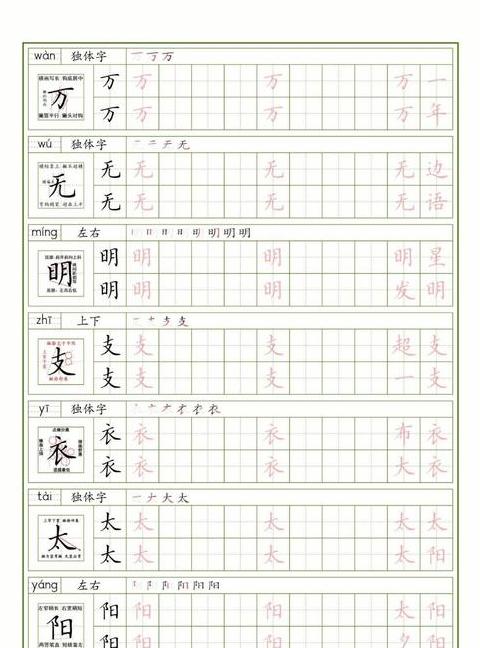 wàn 独体字 一 丁 万
横画写长 钩底居中
万
撇竖平行 撇头对钩
万 万 万 万 一
万 万 万 万 年
wú 独体字 一 二 于 无
无
无 无 无 无 边
无 无 无 无 语
míng 左右 丨 冂 日 日 明 明 明 明
明
明 明 明 明 星
明 明 明 发 明
zhī 上下 一 十 支 支
支
支 支 支 超 支
支 支 支 一 支
yī 独体字 丶 亠 ナ 衣 衣 衣
衣
衣 衣 衣 布 衣
衣 衣 衣 大 衣
tài 独体字 一 ナ 大 太
太
太 太 太 太 太
太 太 太 太 阳
yáng 左右 阝 阝 阳 阳 阳 阳
左窄稍长 右宽稍短
阳
阳 阳 阳 太 阳
阳 阳 阳 夕 阳